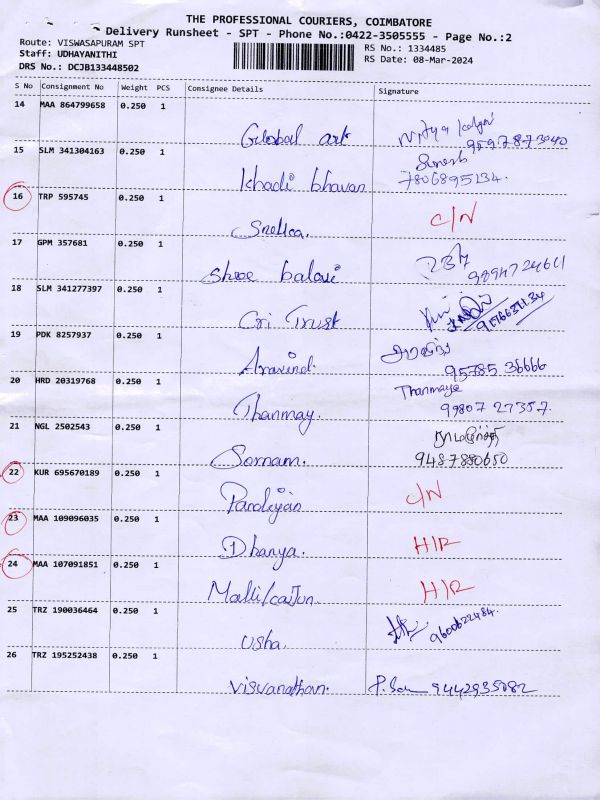 THE PROFESSIONAL COURIERS, COIMBATORE
Delivery Runsheet - SPT - Phone No.:0422-3505555 - Page No.:2
Route: VISWASAPURAM SPT
RS No.: 1334485
Staff: UDHAYANITHI
RS Date: 08-Mar-2024
DRS No.: DCJB133448502
S No Consignment No Weight PCS Consignee Details Signature
14 MAA 864799658 0.250 1
Global ark
15 SLM 341304163 0.250 1
Suresh
Khadi bhavan 7806895134.
16 TRP 595745 0.250 1
C/N
17 GPM 357681 0.250 1
Shree balaji 9894724611
18 SLM 341277397 0.250 1
Cri Trust
19 PDK 8257937 0.250 1
Aravind. 95785 36666
20 HRD 20319768 0.250 1
Thanmaya
Thanmay. 99807 27357.
21 NGL 2502543 0.250 1
Sornam. 9487880650
22 KUR 695670189 0.250 1
C/N
23 MAA 109096035 0.250 1
Dhanya. H/R
24 MAA 107091851 0.250 1
H/R
25 TRZ 190036464 0.250 1
Usha. 9600622484.
26 TRZ 195252438 0.250 1
Viswanathan. 9442935082